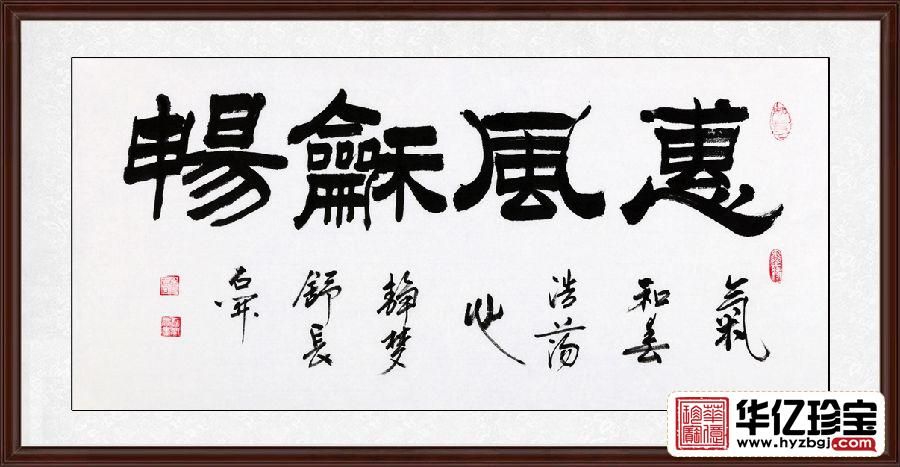 惠風龢暢
氣
和春
浩荡
心
静梦
舒長
石开
华亿珍宝
www.hyzbgj.com